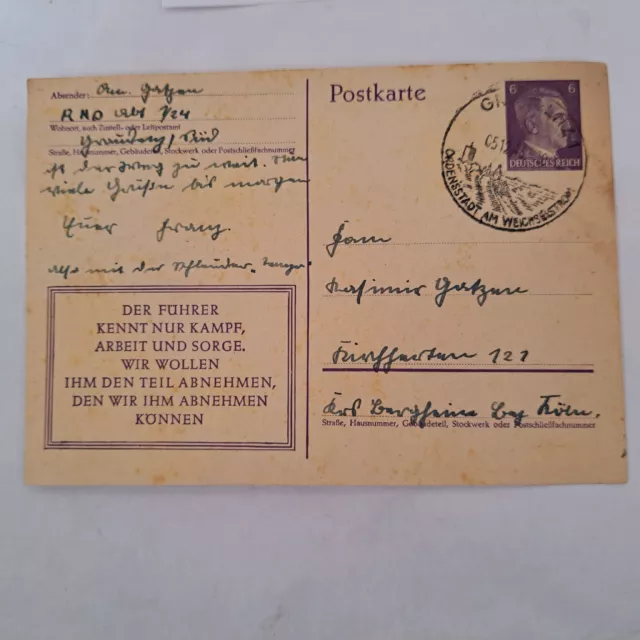 Absender: Am. Gatzen
RAD Abt 7/24
Wohnort, auch Zustell- oder Leitpostamt
Graudenz / Süd
Straße, Hausnummer, Gebäudeteil, Stockwerk oder Postschließfachnummer
ist der Weg zu weit.
viele Grüße bis morgen
Euer Franz.
mit der Schleuder
DER FÜHRER
KENNT NUR KAMPF,
ARBEIT UND SORGE.
WIR WOLLEN
IHM DEN TEIL ABNEHMEN,
DEN WIR IHM ABNEHMEN
KÖNNEN
Postkarte
6 6
DEUTSCHES REICH
ORDENSSTADT AM WEICHSELSTROM
Fam
Kasimir Gatzen
Kirchherten 121
Krs Bergheim Bez Köln.
Straße, Hausnummer, Gebäudeteil, Stockwerk oder Postschließfachnummer